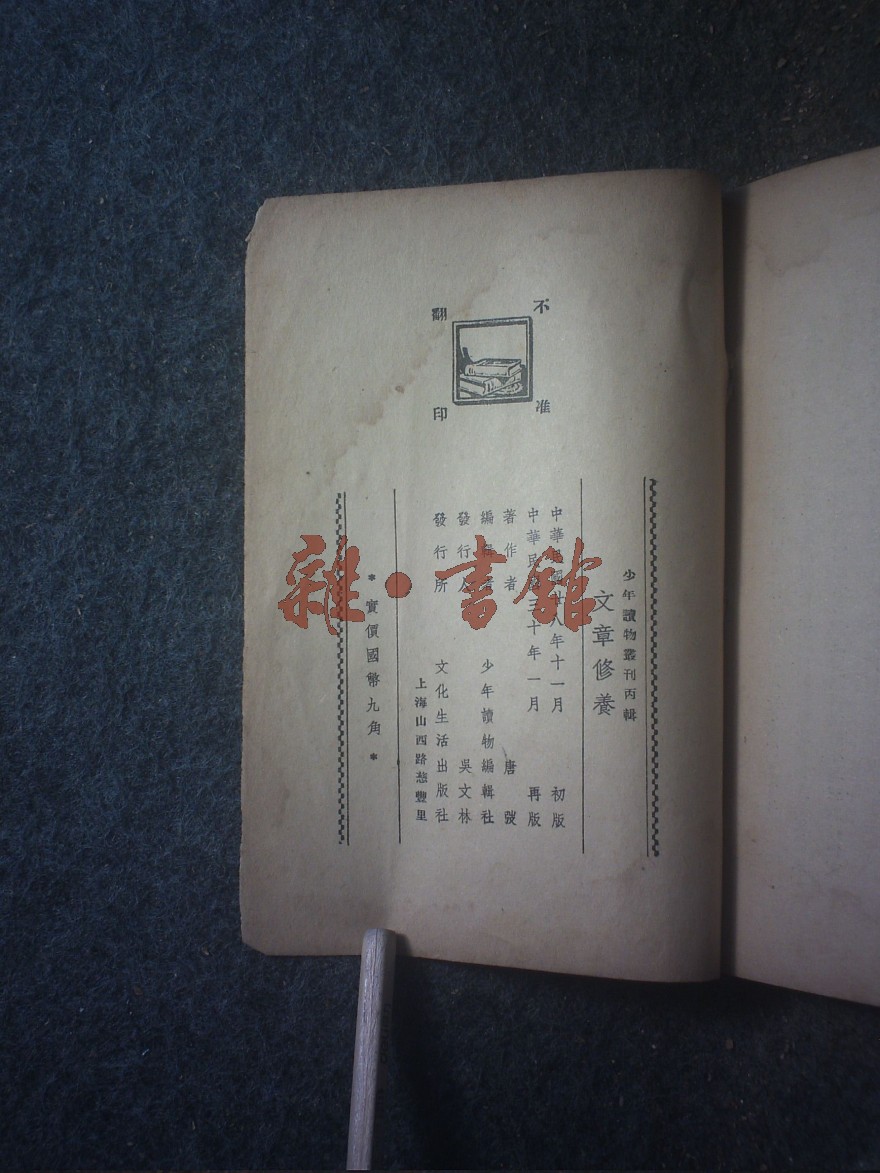 不准
翻印
少年讀物叢刊丙輯
文章修養
中華民國廿八年十一月 初版
中華民國三十年一月 再版
著作者 唐弢
編輯者 少年讀物編輯社
發行人 吳文林
發行所 文化生活出版社
上海山西路慈豐里
*實價國幣九角*
雜·書館